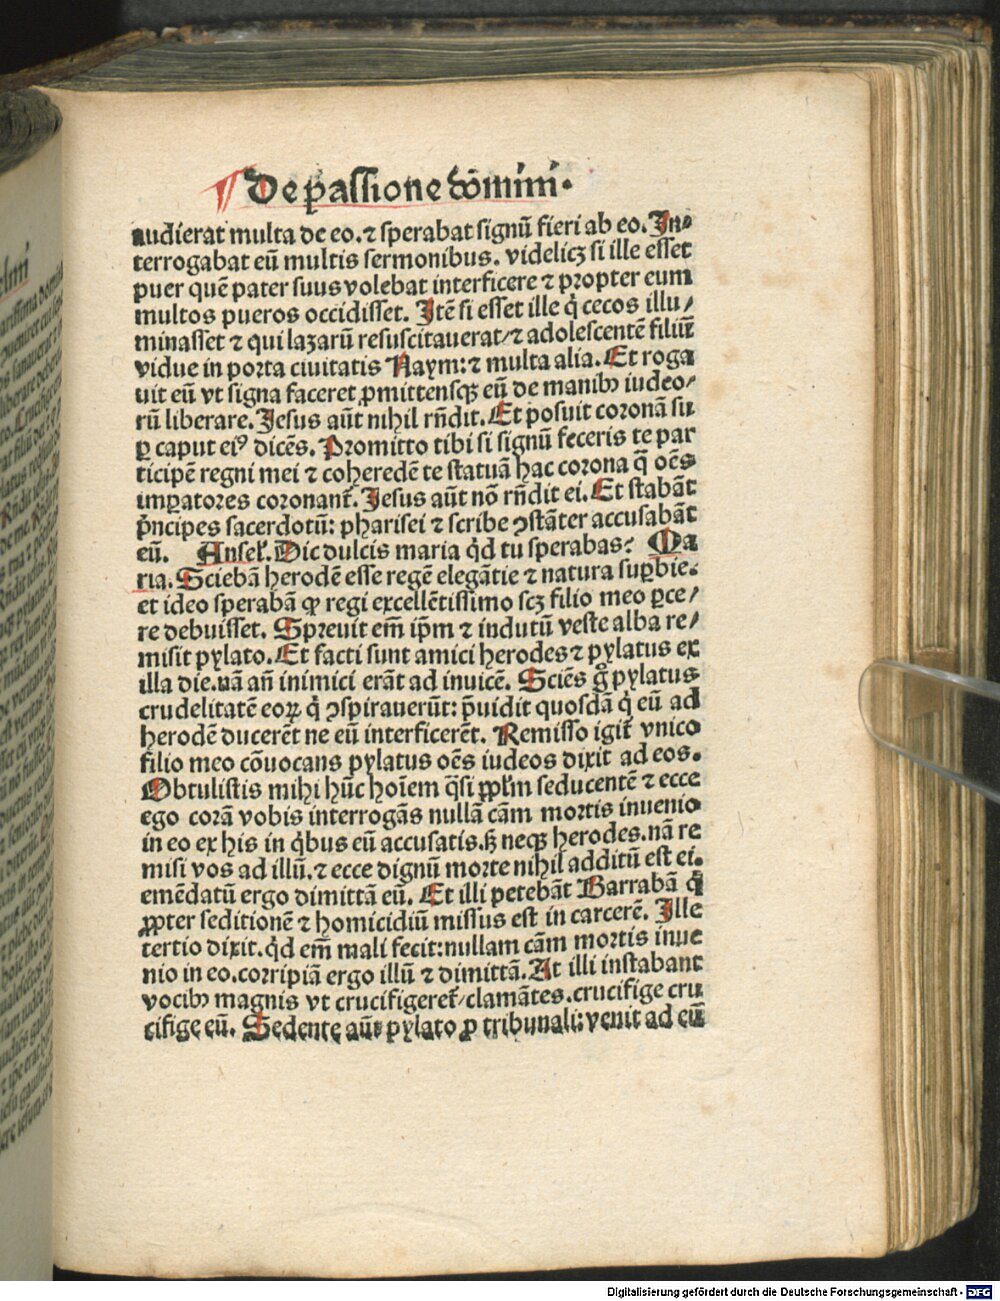 De passione dom̄ini.
audierat multa de eo. ⁊ sperabat signū fieri ab eo. In-
terrogabat eū multis sermonibus. videlicꝫ si ille esset
puer quē pater suus volebat interficere ⁊ propter eum
multos pueros occidisset. Itē si esset ille q̇ cecos illu/
minasset ⁊ qui lazarū resuscitauerat/⁊ adolescentē filiū
vidue in porta ciuitatis Naym: ⁊ multa alia. Et roga
uit eū vt signa faceret ꝓmittensqꝫ eū de manibꝰ iudeo/
rū liberare. Jesus aūt nihil rn̄dit. Et posuit coronā su
ꝑ caput eiꝰ dicēs. Promitto tibi si signū feceris te par
ticipē regni mei ⁊ coheredē te statuā hac corona q̄ oēs
imꝑatores coronant̄. Jesus aūt nō rn̄dit ei. Et stabāt
p̄ncipes sacerdotū: pharisei ⁊ scribe ꝯstāter accusabāt
eū. Anselꝭ. Dic dulcis maria qd̓ tu sperabas? Ma
ria. Sciebā herodē esse regē elegātie ⁊ natura suꝑbie.
et ideo sperabā ꝙ regi excellētissimo scꝫ filio meo ꝑce/
re debuisset. Spreuit em̄ ip̄m ⁊ indutū veste alba re/
misit pylato. Et facti sunt amici herodes ⁊ pylatus ex
illa die. nā an̄ inimici erāt ad inuicē. Sciēs gͦ pylatus
crudelitatē eoꝝ q̇ ꝯspirauerūt: p̄uidit quosdā q̇ eū ad
herodē ducerēt ne eū interficerēt. Remisso igit̄ vnico
filio meo cōuocans pylatus oēs iudeos dixit ad eos.
Obtulistis mihi hūc hoīem q̄si ꝓpl̓m seducentē ⁊ ecce
ego corā vobis interrogās nullā cām mortis inuenio
in eo ex his in q̇bus eū accusatis. sꝫ neqꝫ herodes. nā re
misi vos ad illū. ⁊ ecce dignū morte nihil additū est ei.
emēdatū ergo dimittā eū. Et illi petebāt Barrabā q̇
ꝓpter seditionē ⁊ homicidiū missus est in carcerē. Ille
tertio dixit. qd̓ em̄ mali fecit: nullam cām mortis inue
nio in eo. corripiā ergo illū ⁊ dimittā. At illi instabant
vocibꝰ magnis vt crucifigeret̄/clamātes. crucifige cru
cifige eū. Sedente aūt pylato ꝓ tribunali: venit ad eū
Digitalisierung gefördert durch die Deutsche Forschungsgemeinschaft - DFG